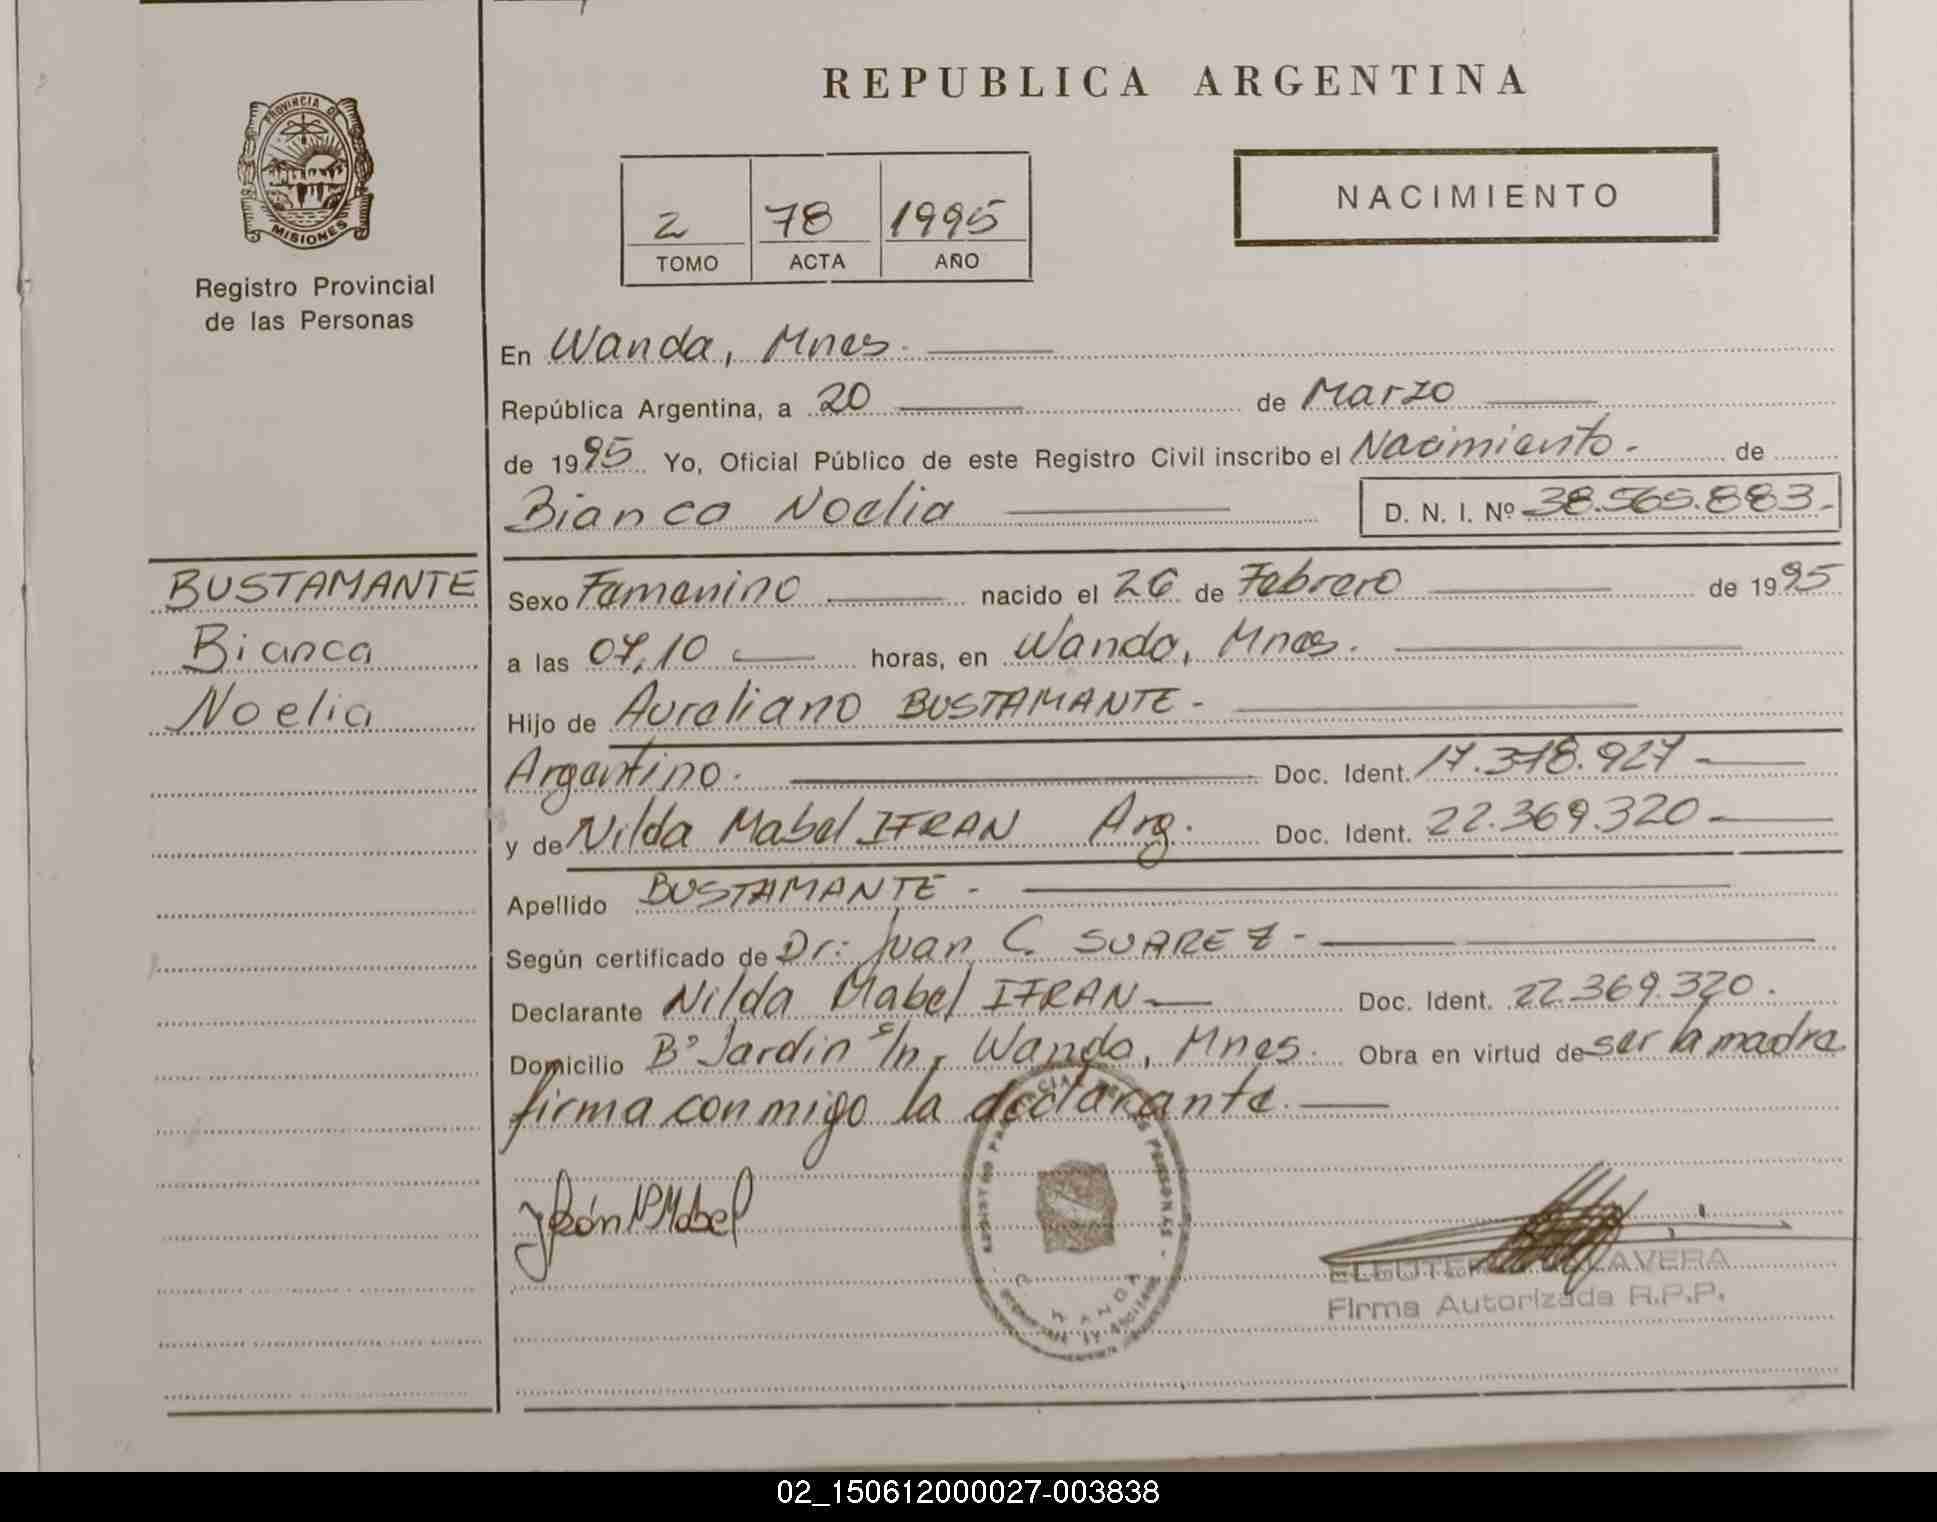 PROVINCIA DE
MISIONES
Registro Provincial
de las Personas
BUSTAMANTE
Bianca
Noelia
REPUBLICA ARGENTINA
2 78 1995
TOMO ACTA AÑO
NACIMIENTO
En Wanda, Mnes.
República Argentina, a 20 de Marzo
de 1995 Yo, Oficial Público de este Registro Civil inscribo el Nacimiento - de
Bianca Noelia D. N. I. Nº 38.565.883.-
Sexo Femenino nacido el 26 de Febrero de 1995
a las 07,10 horas, en Wanda, Mnes.
Hijo de Aureliano BUSTAMANTE -
Argentino. Doc. Ident. 17.378.927 -
y de Nilda Mabel IFRAN Arg. Doc. Ident. 22.369.320 -
Apellido BUSTAMANTE -
Según certificado de Dr: Juan C. SUAREZ -
Declarante Nilda Mabel IFRAN - Doc. Ident. 22.369.320.
Domicilio Bº Jardin s/n, Wanda, Mnes. Obra en virtud de ser la madre
firma conmigo la declarante.
Mabel
WANDA
Firma Autorizada R.P.P.
02_150612000027-003838